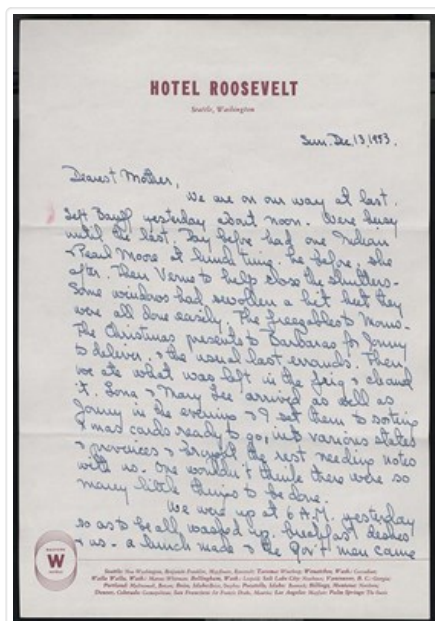 HOTEL ROOSEVELT
Seattle, Washington
Sun. Dec. 13, 1953.
Dearest Mother,
We are on our way at last.
Left Banff yesterday about noon. Were busy
until the last. Day before had one Indian
& Pearl Moore at lunch time. he before, she
after. Then Verne to help close the shutters.
Some windows had swollen a bit but they
were all done easily. The freezables to Moms.
The Christmas presents to Barbaras for Jonny
to deliver, & the usual last errands. Then
we ate what was left in the frig & cleaned
it. Lona & Mary Lee arrived as well as
Jonny in the evening & I set them to sorting
Xmas cards ready to go, into various states
& provinces & the rest needing notes
with us. One wouldn't think there were so
many little things to be done.
We were up at 6 A.M. yesterday
so as to be all washed up, breakfast dishes
& us - a lunch made & the gov't man came
WESTERN
W
HOTELS
Seattle: New Washington, Benjamin Franklin, Mayflower, Roosevelt; Tacoma: Winthrop; Wenatchee, Wash.: Cascadian;
Walla Walla, Wash.: Marcus Whitman; Bellingham, Wash.: Leopold; Salt Lake City: Newhouse; Vancouver, B. C.: Georgia;
Portland: Multnomah, Benson; Boise, Idaho: Boise, Owyhee; Pocatello, Idaho: Bannock; Billings, Montana: Northern;
Denver, Colorado: Cosmopolitan; San Francisco: Sir Francis Drake, Maurice; Los Angeles: Mayfair; Palm Springs: The Oasis